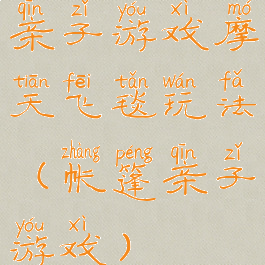 qīn zǐ yóu xì mó
亲子游戏摩
tiān fēi tǎn wán fǎ
天飞毯玩法
zhàng péng qīn zǐ
（帐篷亲子
yóu xì
游戏）